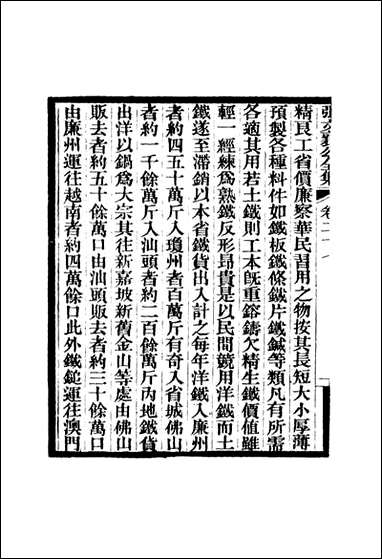 張文襄公全集 卷二十七
精良工省價廉察華民習用之物按其長短大小厚薄
預製各種料件如鐵板鐵條鐵片鐵鍼等類凡有所需
各適其用若土鐵則工本旣重鎔鑄欠精生鐵價値雖
輕一經練爲熟鐵反形昂貴是以民間競用洋鐵而土
鐵遂至滯銷以本省鐵貨出入計之每年洋鐵入廉州
者約四五十萬斤入瓊州者百萬斤有奇入省城佛山
者約一千餘萬斤入汕頭者約二百餘萬斤內地鐵貨
出洋以鍋爲大宗其往新嘉坡新舊金山等處由佛山
販去者約五十餘萬口由汕頭販去者約三十餘萬口
由廉州運往越南者約四萬餘口此外鐵鎚運往澳門